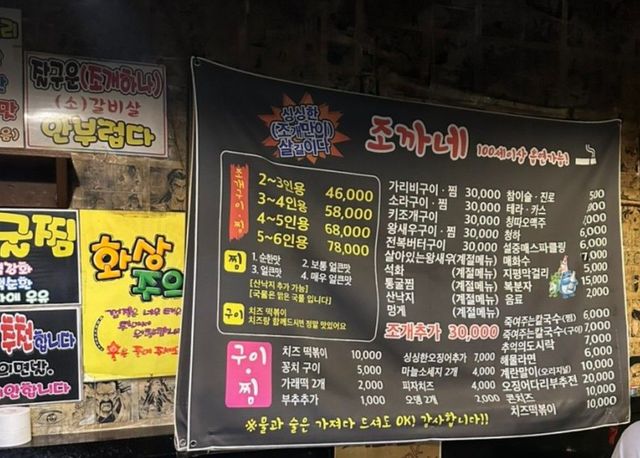 잘구운(조개하나)
(소)갈비살
안부럽다
싱싱한
(조개만이)
살길이다
조까네
100세이상 흡연가능!
조개구이·찜
2~3인용 46,000
3~4인용 58,000
4~5인용 68,000
5~6인용 78,000
찜
1. 순한맛 2. 보통 얼큰맛
3. 얼큰맛 4. 매우 얼큰맛
[산낙지 추가 가능]
[국물은 맑은 국물 입니다]
구이
치즈 떡볶이
치즈랑 함께드시면 정말 맛있어요
가리비구이·찜 30,000
소라구이·찜 30,000
키조개구이 30,000
왕새우구이·찜 30,000
전복버터구이 30,000
살아있는왕새우(계절메뉴)
석화 (계절메뉴)
통굴찜 (계절메뉴)
산낙지 (계절메뉴)
멍게 (계절메뉴)
조개추가 30,000
참이슬·진로
테라·카스
청하
설중매스파클링 6,000
매화수 7,000
지평막걸리 5,000
복분자 15,000
음료 2,000
구이 찜
치즈 떡볶이 10,000
꽁치 구이 5,000
가래떡 2개 2,000
부추추가 1,000
싱싱한오징어추가 7,000
마늘소세지 2개 4,000
피자치즈 4,000
오뎅 2개 2,000
죽여주는칼국수(찜) 6,000
죽여주는칼국수(구이) 7,000
추억의도시락
해물라면 6,000
계란말이(오리지널) 10,000
오징어다리부추전 20,000
콘치즈
치즈떡볶이 10,000
※물과 술은 가져다 드셔도 OK! 감사합니다!!
찜
화상
주의
추천합니다